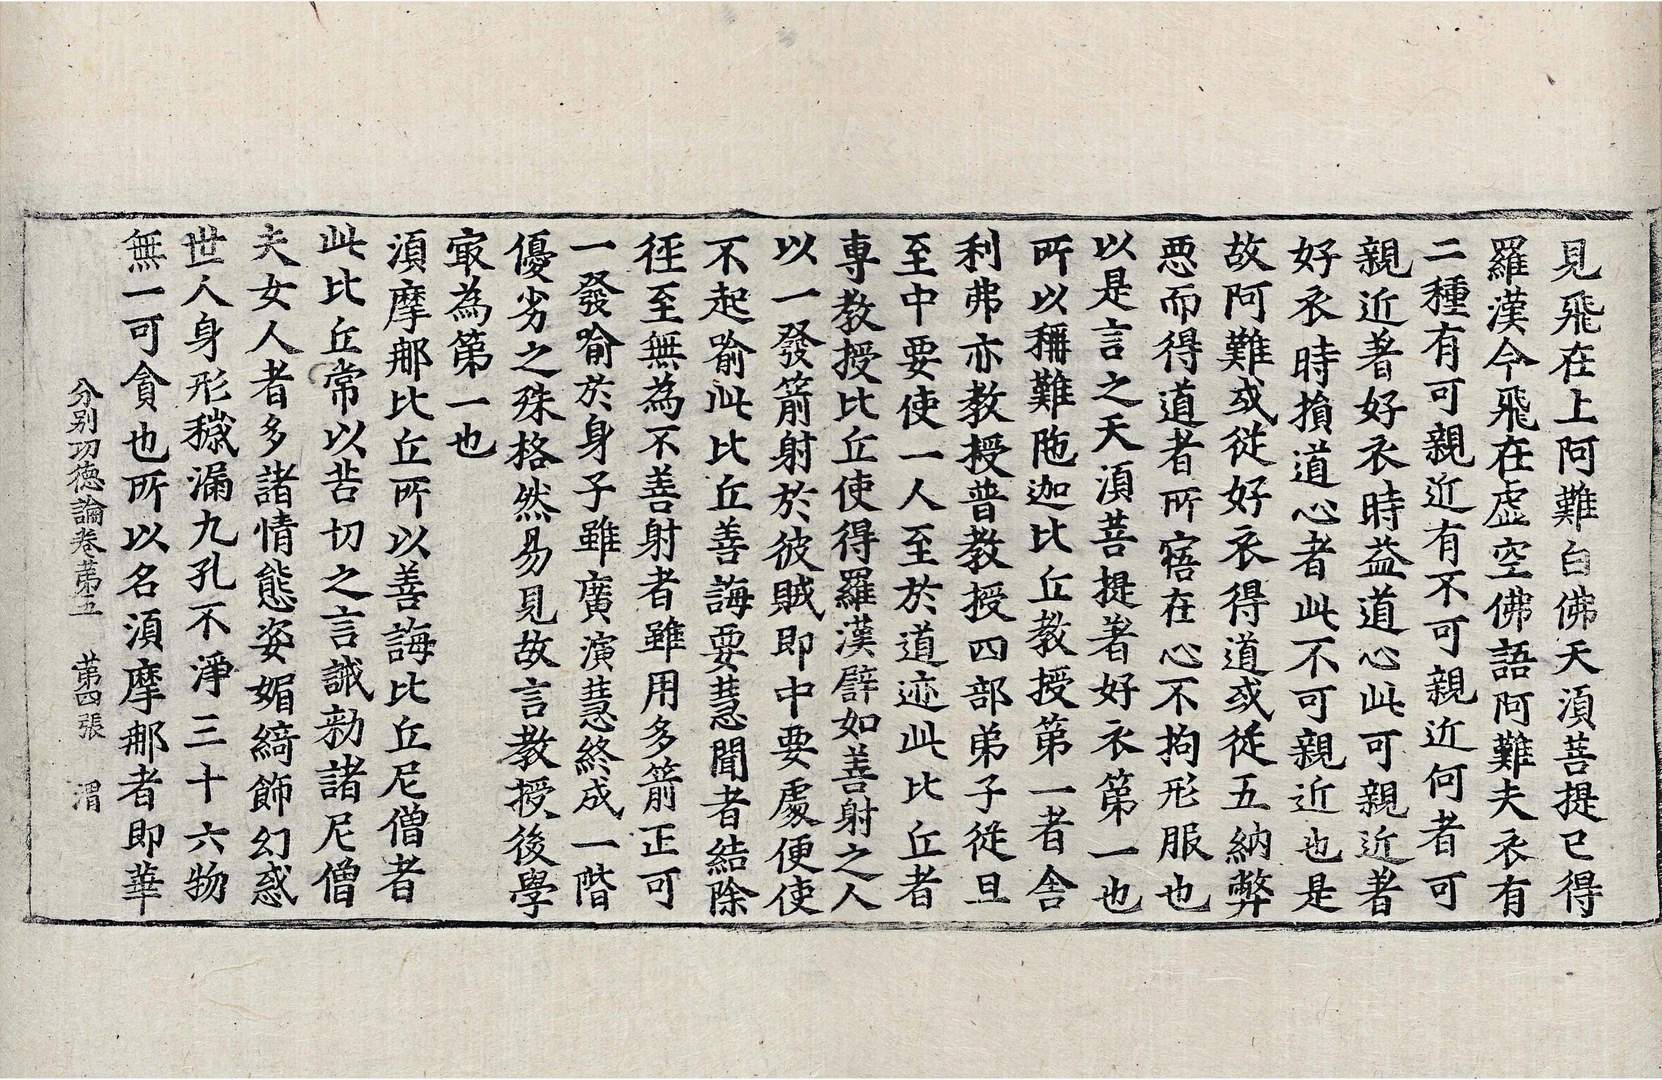 見飛在上阿難白佛天湏菩提已得
羅漢今飛在虛空佛語阿難夫衣有
二種有可親近有不可親近何者可
親近著好衣時益道心此可親近著
好衣時損道心者此不可親近也是
故阿難或從好衣得道或從五納弊
惡而得道者所寤在心不拘形服也
以是言之天湏菩提著好衣第一也
所以稱難陁迦比丘教授第一者舍
利弗亦教授普教授四部弟子從旦
至中要使一人至於道迹此比丘者
專教授比丘使得羅漢譬如善射之人
以一發箭射於彼賊即中要處便使
不起喻此比丘善誨要慧聞者結除
徑至無為不善射者雖用多箭正可
一發喻於身子雖廣演慧終成一階
優劣之殊格然易見故言教授後學
㝡為第一也
湏摩那比丘所以善誨比丘尼僧者
此比丘常以苦切之言誡勑諸尼僧
夫女人者多諸情態姿媚綺飾幻惑
世人身形穢漏九孔不淨三十六物
無一可貪也所以名湏摩那者即華
分別功德論卷第五 第四張 渭